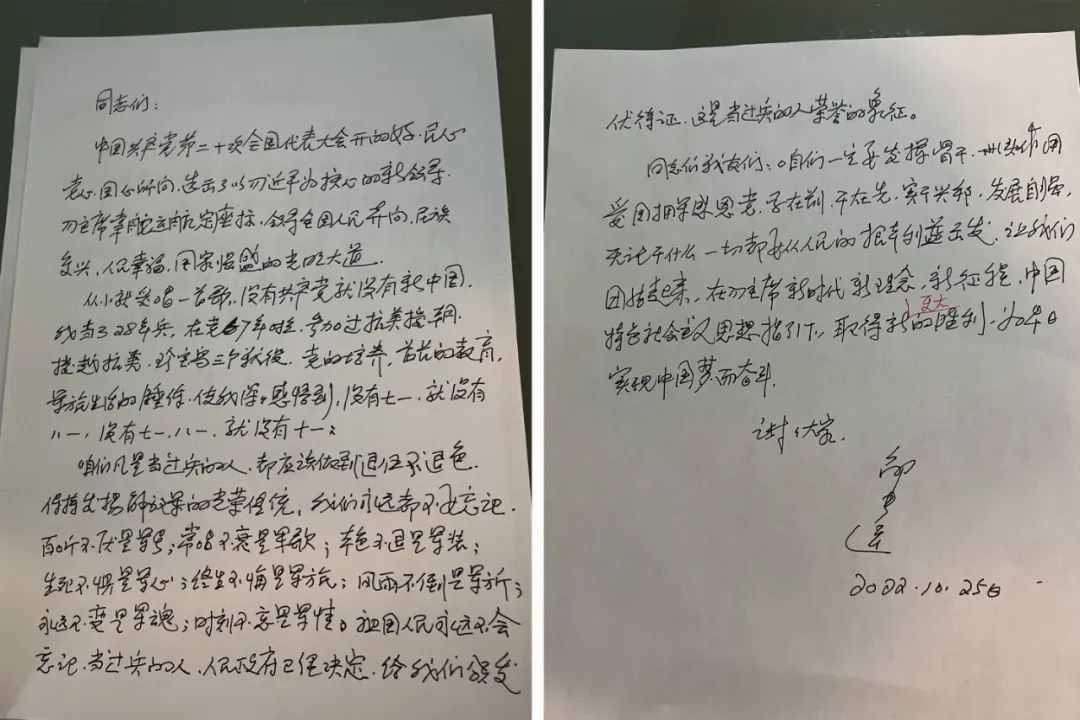 同志们：
中国共产党第二十次全国代表大会开的好.民心
党心.国心所向，选出了以习近平为核心的新领导.
习主席掌舵远航定座标，领导全国人民奔向.民族
复兴，人民幸福，国家强盛的光明大道.
从小就爱唱一首歌，没有共产党就没有新中国，
我当了28年兵，在党67年时间，参加过抗美援朝.
援越抗美.珍宝岛三个战役.党的培养，首长的教育，
军旅生活的锤炼.使我深深感悟到，没有七一.就没有
八一，没有七一.八一.就没有十一；
咱们凡是当过兵的人，都应该做到退伍不退色.
保持发扬解放军的光荣传统，我们永远都不要忘记.
百听不厌是军号；常唱不衰是军歌；本色不退是军装；
生死不惧是军心；终生不悔是军旅；风雨不倒是军旗；
永远不变是军魂；时刻不忘是军情。祖国人民永远不会
忘记.当过兵的人.人民政府已经决定.给我们颁发
优待证.这是当过兵的人荣誉的象征。
同志们战友们：咱们一定要发挥骨干.作用
爱国拥军感恩党.学在前.干在先.实干兴邦.发展自强，
无论干什么一切都要从人民的根本利益出发.让我们
团结起来，在习主席新时代新理念，新征程，中国
特色社会主义思想指引下，取得新的更大胜利.为早日
实现中国梦而奋斗.
谢谢大家.
2022.10.25日